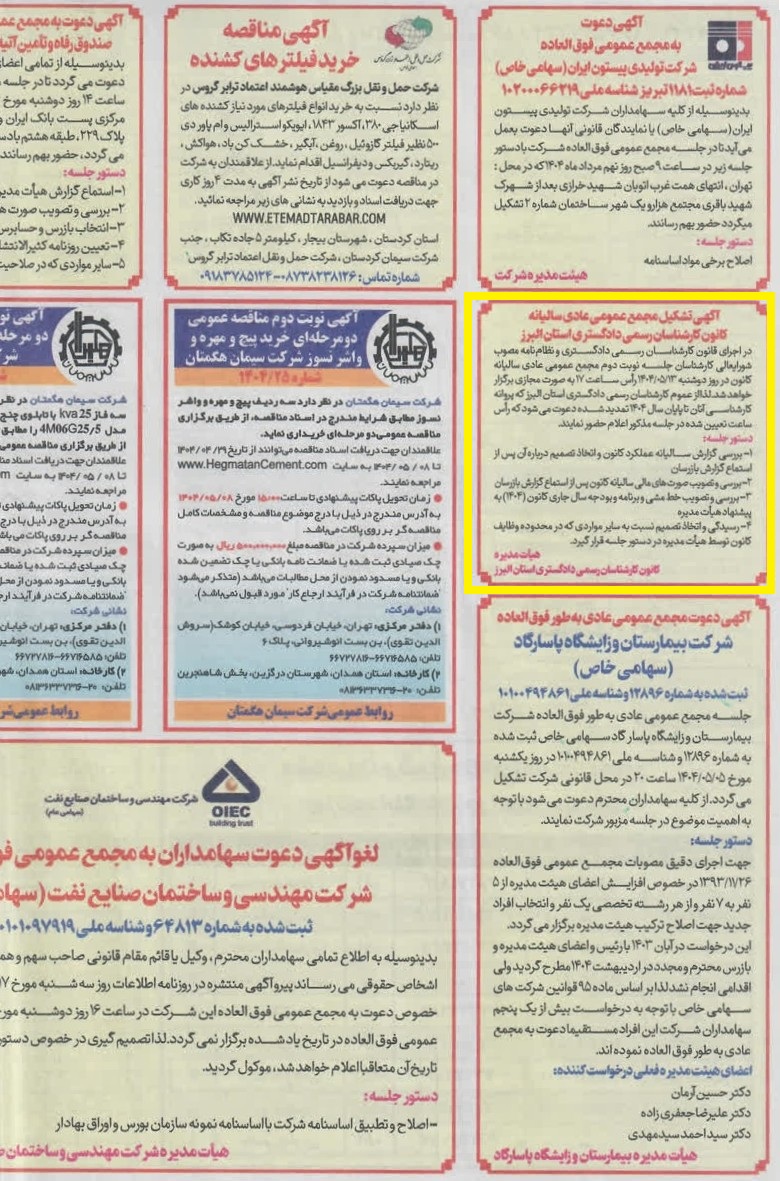 آگهی دعوت
به مجمع عمومی فوق العاده
شرکت تولیدی پیستون ایران (سهامی خاص)
شماره ثبت ۱۱۸۱ تبریز شناسه ملی ۱۰۲۰۰۰۶۶۲۱۹
بدینوسیله از کلیه سهامداران شرکت تولیدی پیستون
ایران (سهامی خاص) یا نمایندگان قانونی آنها دعوت بعمل
می‌آید تا در جلسه مجمع عمومی فوق العاده شرکت با دستور
جلسه زیر در ساعت ۹ صبح روز نهم مرداد ماه ۱۴۰۴ که در محل :
تهران ، انتهای همت غرب اتوبان شهید خرازی بعد از شهرک
شهید باقری مجتمع هزار و یک شهر ساختمان شماره ۲ تشکیل
میگردد حضور بهم رسانند.
دستور جلسه :
اصلاح برخی مواد اساسنامه
هیئت مدیره شرکت
آگهی تشکیل مجمع عمومی عادی سالیانه
کانون کارشناسان رسمی دادگستری استان البرز
در اجرای قانون کارشناسان رسمی دادگستری و نظام نامه مصوب
شورایعالی کارشناسان جلسه نوبت دوم مجمع عمومی عادی سالیانه
کانون در روز دوشنبه ۱۴۰۴/۰۵/۱۳ رأس ساعت ۱۷ به صورت مجازی برگزار
خواهد شد. لذا از عموم کارشناسان رسمی دادگستری استان البرز که پروانه
کارشناسی آنان تا پایان سال ۱۴۰۴ تمدید شده دعوت می شود که رأس
ساعت تعیین شده در جلسه مذکور اعلام حضور نمایند.
دستور جلسه :
۱-بررسی گزارش سالیانه عملکرد کانون و اتخاذ تصمیم درباره آن پس از
استماع گزارش بازرسان
۲-بررسی و تصویب صورت های مالی سالیانه کانون پس از استماع گزارش بازرسان
۳-بررسی و تصویب خط مشی و برنامه و بودجه سال جاری کانون (۱۴۰۴) به
پیشنهاد هیأت مدیره
۴-رسیدگی و اتخاذ تصمیم نسبت به سایر مواردی که در محدوده وظایف
کانون توسط هیأت مدیره در دستور جلسه قرار گیرد.
هیأت مدیره
کانون کارشناسان رسمی دادگستری استان البرز
آگهی دعوت مجمع عمومی عادی به طور فوق العاده
شرکت بیمارستان و زایشگاه پاسارگاد
(سهامی خاص)
ثبت شده به شماره ۱۲۸۹۶ و شناسه ملی ۱۰۱۰۰۴۹۴۸۶۱
جلسه مجمع عمومی عادی به طور فوق العاده شرکت
بیمارستان و زایشگاه پاسارگاد سهامی خاص ثبت شده
به شماره ۱۲۸۹۶ و شناسه ملی ۱۰۱۰۰۴۹۴۸۶۱ در روز یکشنبه
مورخ ۱۴۰۴/۰۵/۰۵ ساعت ۲۰ در محل قانونی شرکت تشکیل
می گردد. از کلیه سهامداران محترم دعوت می شود با توجه
به اهمیت موضوع در جلسه مزبور شرکت نمایند.
دستور جلسه:
جهت اجرای دقیق مصوبات مجمع عمومی فوق العاده
۱۳۹۳/۱۱/۲۶ در خصوص افزایش اعضای هیئت مدیره از ۵
نفر به ۷ نفر و از هر رشته تخصصی یک نفر و انتخاب افراد
جدید جهت اصلاح ترکیب هیئت مدیره برگزار می گردد.
این درخواست در آبان ۱۴۰۳ با رئیس و اعضای هیئت مدیره و
بازرس محترم و مجدد در اردیبهشت ۱۴۰۴ مطرح گردید ولی
اقدامی انجام نشد لذا بر اساس ماده ۹۵ قوانین شرکت های
سهامی خاص با توجه به درخواست بیش از یک پنجم
سهامداران شرکت این افراد مستقیما دعوت به مجمع
عادی به طور فوق العاده نموده اند.
اعضای هیئت مدیره فعلی درخواست کننده:
دکتر حسین آرمان
دکتر علیرضا جعفری زاده
دکتر سید احمد سید مهدی
هیأت مدیره بیمارستان و زایشگاه پاسارگاد
آگهی مناقصه
خرید فیلترهای کشنده
شرکت حمل و نقل بزرگ مقیاس هوشمند اعتماد ترابر گروس در
نظر دارد نسبت به خرید انواع فیلترهای مورد نیاز کشنده های
اسکانیا جی ۳۸۰، آکسور ۱۸۴۳، ایویکو استرالیس وام پاور دی
۵۰۰ نظیر فیلتر گازوئیل ، روغن ، آبگیر ، خشک کن باد، هواکش ،
ریتارد، گیربکس و دیفرانسیل اقدام نماید. از علاقمندان به شرکت
در مناقصه دعوت می شود از تاریخ نشر آگهی به مدت ۴ روز کاری
جهت دریافت اسناد و بازدید به نشانی های زیر مراجعه نمائید.
WWW.ETEMADTARABAR.COM
استان کردستان ، شهرستان بیجار ، کیلومتر ۵ جاده تکاب ، جنب
شرکت سیمان کردستان ، شرکت حمل و نقل اعتماد ترابر گروس
شماره تماس: ۰۸۷۳۸۲۳۸۱۲۶-۰۹۱۸۳۷۸۵۱۲۴
آگهی نوبت دوم مناقصه عمومی
دو مرحله‌ای خرید پیچ و مهره و
واشر نسوز شرکت سیمان هگمتان
شماره ۱۴۰۴/۲۵
شرکت سیمان هگمتان در نظر دارد سه ردیف پیچ و مهره و واشر
نسوز مطابق شرایط مندرج در اسناد مناقصه، از طریق برگزاری
مناقصه عمومی دو مرحله‌ای خریداری نماید.
علاقمندان جهت دریافت اسناد مناقصه می‌توانند از تاریخ ۱۴۰۴/۰۴/۲۹
تا ۱۴۰۴/۰۵/۰۸ به سایت www.HegmatanCement.com
مراجعه نمایند.
● زمان تحویل پاکات پیشنهادی تا ساعت ۱۵:۰۰ مورخ ۱۴۰۴/۰۵/۰۸
به آدرس مندرج در ذیل با درج موضوع مناقصه و مشخصات کامل
مناقصه گر بر روی پاکات می‌باشد.
● میزان سپرده شرکت در مناقصه مبلغ ۵۰۰,۰۰۰,۰۰۰ ریال به صورت
چک صیادی ثبت شده یا ضمانت نامه بانکی یا چک تضمین شده
بانکی و یا مسدود نمودن از محل مطالبات می‌باشد (متذکر می‌شود
"ضمانتنامه شرکت در فرآیند ارجاع کار" مورد قبول نمی‌باشد).
نشانی شرکت:
۱) دفتر مرکزی: تهران، خیابان فردوسی، خیابان کوشک (سروش
الدین تقوی)، بن بست انوشیروانی، پلاک ۶
تلفن: ۶۶۷۱۶۵۸۵-۶۶۷۲۷۸۱۶
۲) کارخانه: استان همدان، شهرستان درگزین، بخش شاهنجرین
تلفن: ۲۰-۰۸۱۳۶۳۳۷۳۱۶
روابط عمومی شرکت سیمان هگمتان
آگهی دعوت به مجمع عمو
صندوق رفاه و تأمین آتیه
بدینوسیله از تمامی اعضای
دعوت می گردد تا در جلسه
ساعت ۱۴ روز دوشنبه مورخ
مرکزی پست بانک ایران و
پلاک ۲۲۹، طبقه هشتم با دس
می گردد، حضور بهم رسانند.
دستور جلسه :
۱-استماع گزارش هیأت مدیر
۲-بررسی و تصویب صورت ه
۳-انتخاب بازرس و حسابرس
۴-تعیین روزنامه کثیرالانتشا
۵-سایر مواردی که در صلاحیت
آگهی نو
دو مرحله
شر
شرکت سیمان هگمتان در نظر
سه فاز 25 kva با تابلوی چنج
مدل 4M06G25/5 را مطابق
از طریق برگزاری مناقصه عمومی
علاقمندان جهت دریافت اسناد مناق
تا ۱۴۰۴/۰۵/۰۸ به سایت
مراجعه نمایند.
● زمان تحویل پاکات پیشنهادی تا
به آدرس مندرج در ذیل با درج
مناقصه گر بر روی پاکات می‌باشد
● میزان سپرده شرکت در مناقصه
چک صیادی ثبت شده یا ضمانت
بانکی و یا مسدود نمودن از محل
"ضمانتنامه شرکت در فرآیند ارجا
نشانی شرکت:
۱) دفتر مرکزی: تهران، خیابان
الدین تقوی)، بن بست انوشیر
تلفن: ۶۶۷۱۶۵۸۵-۶۶۷۲۷۸۱۶
۲) کارخانه: استان همدان، شه
تلفن: ۲۰-۰۸۱۳۶۳۳۷۳۱۶
روابط عمومی شر
OIEC
building trust
شرکت مهندسی و ساختمان صنایع نفت
(سهامی عام)
لغو آگهی دعوت سهامداران به مجمع عمومی فو
شرکت مهندسی و ساختمان صنایع نفت (سها
ثبت شده به شماره ۶۴۸۱۳ و شناسه ملی ۰۱۰۱۰۹۷۹۱۹
بدینوسیله به اطلاع تمامی سهامداران محترم ، وکیل یا قائم مقام قانونی صاحب سهم و هم
اشخاص حقوقی می رساند پیرو آگهی منتشره در روزنامه اطلاعات روز سه شنبه مورخ ۱۷
خصوص دعوت به مجمع عمومی فوق العاده این شرکت در ساعت ۱۶ روز دوشنبه مور
عمومی فوق العاده در تاریخ یاد شده برگزار نمی گردد. لذا تصمیم گیری در خصوص دستور
تاریخ آن متعاقبا اعلام خواهد شد، موکول گردید.
دستور جلسه :
-اصلاح و تطبیق اساسنامه شرکت با اساسنامه نمونه سازمان بورس و اوراق بهادار
هیأت مدیره شرکت مهندسی و ساختمان ص